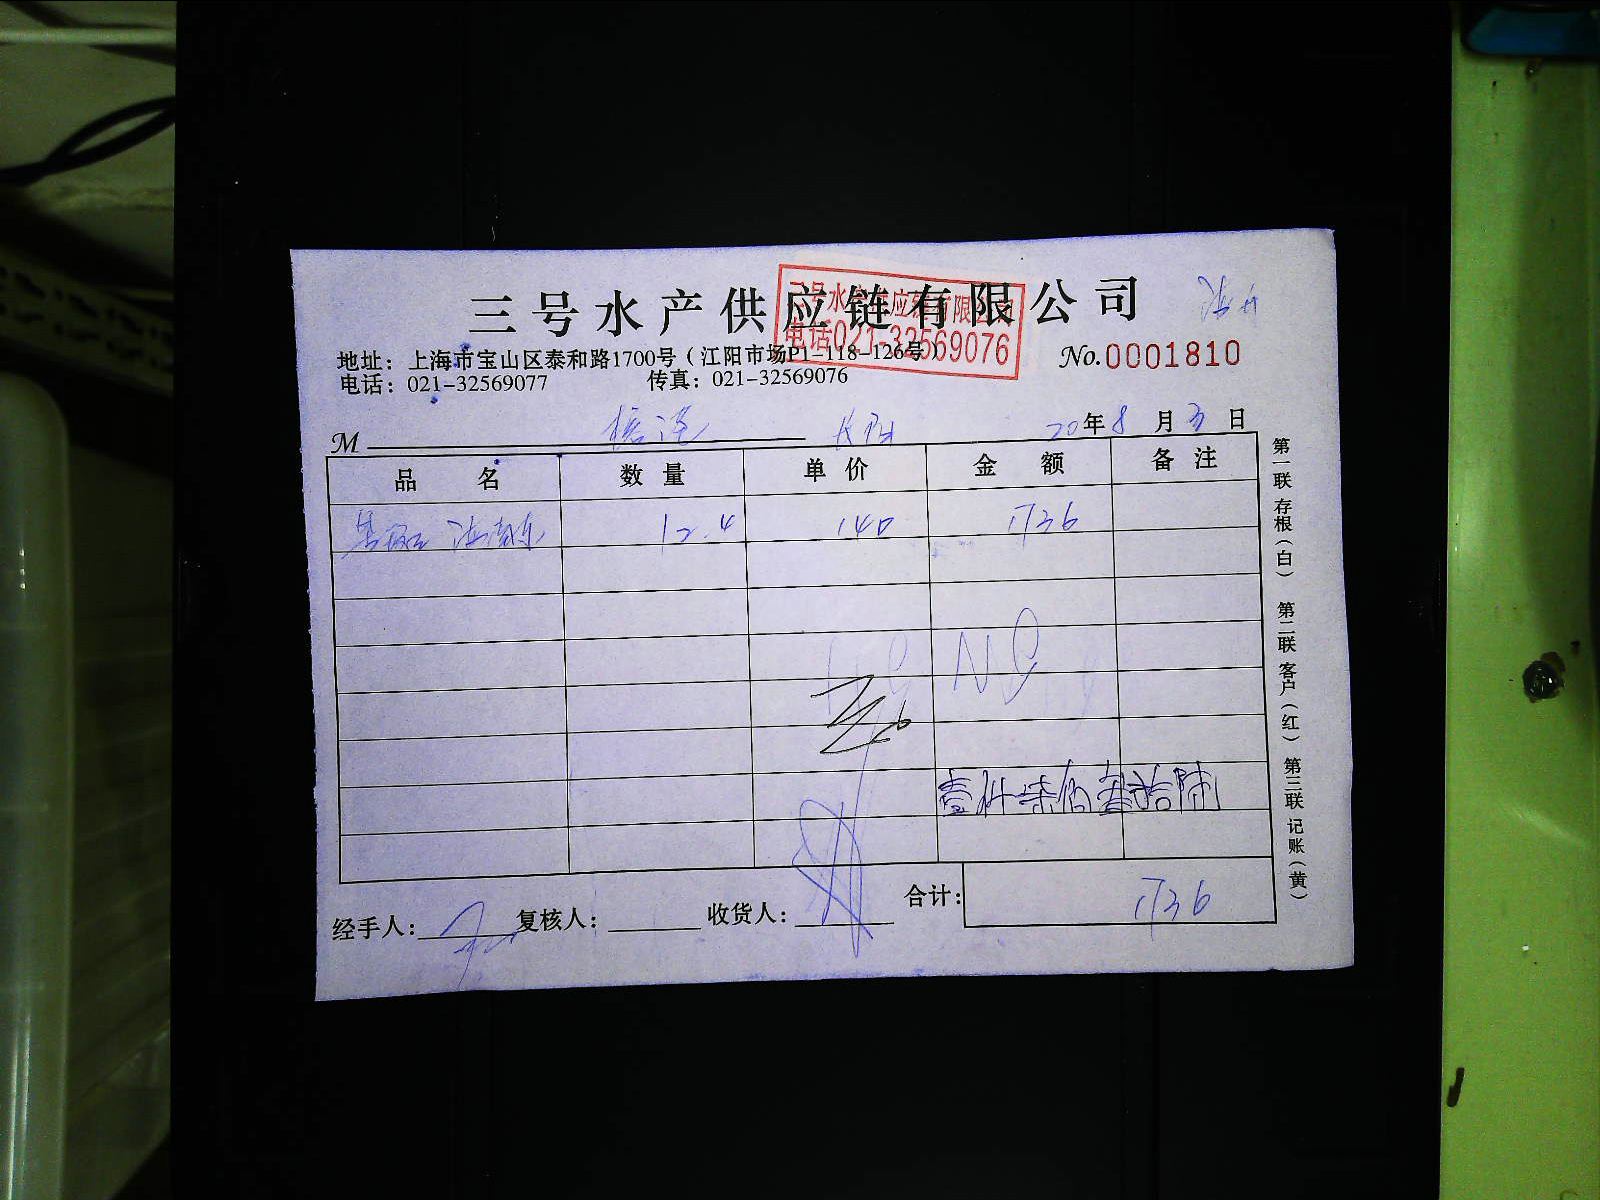 三号水产供应链有限公司
三号水产供应链有限公司
电话021-32569076
地址：上海市宝山区泰和路1700号（江阳市场P1-118-126号）
No.0001810
电话：021-32569077 传真：021-32569076
M 20年8月3日
品名 数量 单价 金额 备注
12.4 140 1736
NG
壹仟柒佰叁拾陆
经手人： 复核人： 收货人： 合计：1736
第一联 存根（白） 第二联 客户（红） 第三联 记账（黄）